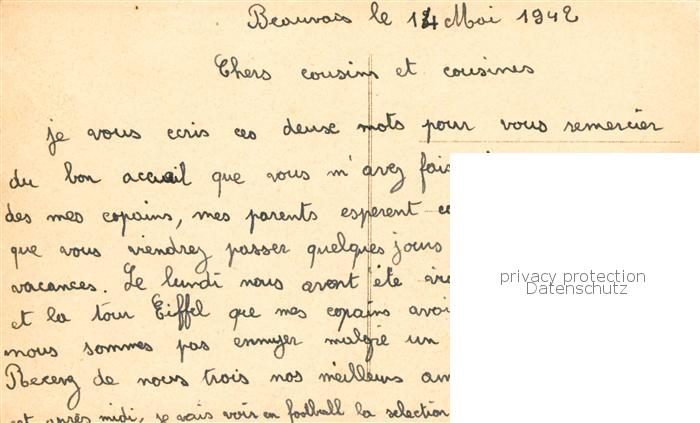 Beauvais le 14 Mai 1942
Chers cousins et cousines
je vous ecris ces deux mots pour vous remercier
du bon accueil que vous m'avez fais
des mes copains, mes parents esperent
que vous viendrez passer quelques jours
vacances. Le lundi nous avont été
et la tour Eiffel que mes copains
nous sommes pas ennuyer malgré un
Recevez de nous trois nos meilleurs
après midi, je vais voir en football la selection
privacy protection
Datenschutz